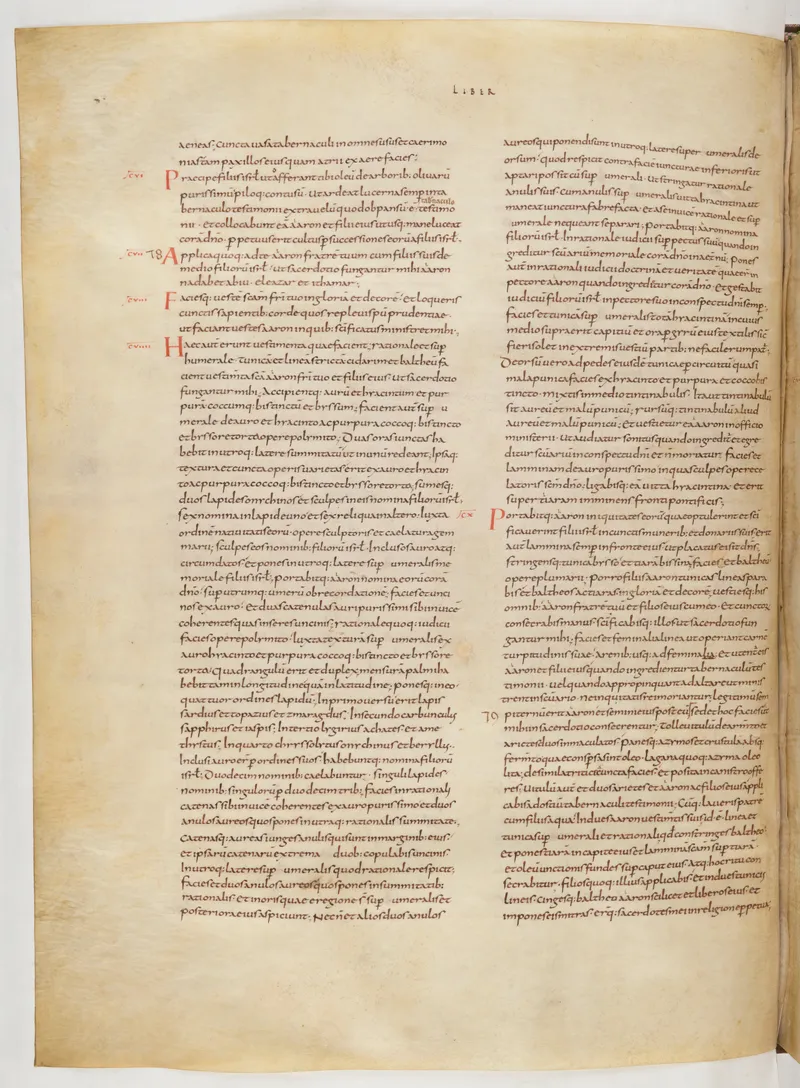 LIBER
aeneas; Cuncta uasa tabernaculi in omnes usus et caerimo
nias tam paxillos eius quam atrii ex aere facies;
.cvi.
Praecipe filiis isrl ut afferant tibi oleū de arborib; oliuarū
purissimū piloq; contusū · ut ardeat lucerna semp in ta
bernaculo testamonii extra uelū quod obpansū ē testimo
nio · et collocabunt eā aaron et filii eius ut usq; mane luceat
corā dnō · ppetuus erit cultus p successiones eorū a filiis isrl·
.cvii.
Applica quoq; ad te aaron fratrē tuum cum filiis suis de
medio filiorū isrl · ut sacerdotio fungantur mihi aaron
nadab et abiu · eleazar et ithamar;
.cviii.
Faciesq; uestē scam fri tuo in gloriā et decorē · et loqueris
cunctis sapientib; corde quos repleui spū prudentiae ·
ut faciant uestes aaron in quib; scificatus ministret mihi;
.cviiii.
Haec aut erunt uestimenta quae facient; rationale et sup
humerale · tunicā et lineā strictā cidarim et baltheū fa
cient uestimta scā aaron fri tuo et filiis eius · ut sacerdotio
fungantur mihi; Accipientq; aurū et hyacintum et pur
purā coccumq; bis tinctū et byssum; facient aut sup u
merale de auro et hyacinto ac purpura coccoq; bis tincto
et bysso retorta opere polymito; Duas oras iunctas ha
bebit in utroq; latere summitatū ut in unū redeant; Ipsaq;
textura et cuncta operis uarietas erit ex auro et hyacin
to ac purpura coccoq; bis tincto et bysso retorta; sumesq;
duos lapides onychinos et sculpes in eis nomina filiorū isrl·
sex nomina in lapide uno et sex reliqua in altero; Iuxta
ordinē natiuitatis eorū · opere sculptoris et caelatura gem
marii; sculpes eos nominib; filiorū isrl · Inclusos auro atq;
circumdatos et pones in utroq; latere sup umeralis me
moriale filiis isrl; portabitq; aaron nomina eorū corā
dnō · sup utrumq; umerū ob recordatione; facies et unci
nos ex auro · et duas catenulas auri purissimi sibi inuice
coherentes quas inseres uncinis; rationale quoq; iudicii
facies opere polymito · iuxta texturā sup umeralis ex
auro hyacinto et purpura coccoq; bis tincto et bysso re
torta; Quadrangulū erit et duplex mensurā palmi ha
bebit tam in longitudine quā in latitudine; ponesq; in eo
quattuor ordines lapidū; In primo uersu erit lapis
sardius et topazius et zmaragdus; In secundo carbunculus
sapphirus et iaspis; In tertio lygirius achates et ame
thistus; In quarto chrysolitus onychinus et beryllus;
Inclusi auro erunt p ordines suos; habebuntq; nomina filiorū
isrl; Duodecim nominib; caelabuntur · singuli lapides
nominib; singulorū p duodecim trib; facies in rationali
catenas sibi inuice coherentes ex auro purissimo et duos
anulos aureos quos pones in utraq; rationalis summitate;
catenasq; aureas iunges anulis qui sunt in marginib; eius ·
et ipsarū catenarū extrema duob; copulabis uncinis
In utroq; latere sup umeralis quod rationale respicit;
facies et duos anulos aureos quos pones in summitatib;
rationalis et in oris quae e regione s sup umeralis et
posteriora eius aspiciunt; Necn et alios duos anulos
aureos qui ponendi sunt in utroq; latere sup umeralis de
orsum · quod respicit contra facie iuncturae inferioris ut
aptari possit cū sup umerali · et stringatur rationale
anulis suis cum anulis sup umeralis uitta hyacintina ut
maneat iunctura fabrefacta et a se inuice rationale et sup
umerale nequeant separari; portabitq; aaron nomina
filiorū isrl · In rationale iudicii sup pectus suū quando in
gredietur scuariū memoriale corā dnō in aeternū; pones
aut in rationali iudicii doctrinā et ueritate quae er in
pectore aaron quando ingreditur corā dnō · et gestabit
iudiciū filiorū isrl in pectore suo in conspectu dni semp;
facies et tunicā sup umeralis totā hyacintinā in cuius
medio supra erit capitiū et ora p gyrū eius textilis sic
fieri solet in extremis uestiū partib; ne facile rumpat;
Deorsū uero ad pedes eiusde tunicae p circuitū quasi
mala punica facies ex hyacinto et purpura et cocco bis
tincto · mixtis in medio tintinabulis · Ita ut tintinabulū
sit aureū et malū punicū; rursūq; tintinabulū aliud
aureū et malū punicū; et uestietur ea aaron in officio
ministerii · ut audiatur sonitus quando ingredit et egre
ditur scuariū in conspectu dni et n moriatur; facies et
lamminam de auro purissimo in qua sculpes opere ce
latoris scm dno; ligabisq; ea uitta hyacintina et erit
sup tiaram imminens fronti pontificis;
.cx.
Portabitq; aaron iniquitates eorū quae optulerint et sci
ficauerint filii isrl in cunctis munerib; et donariis suis erit
aut lammina semp in fronte eius ut placatus eis sit dns;
stringensq; tunicā bysso et tiarā bissinā facies et baltheū
opere plumarii; porro filiis aaron tunicas lineas para
bis et baltheos ac tiaras in gloriā et decorē; uestiesq; his
omnib; aaron fratrē tuū et filios eius cum eo · et cunctorū
consecrabis manus · scificabisq; illos ut sacerdotio fun
gantur mihi; facies et feminalia linea ut operiant carne
turpitudinis suae · a renib; usq; ad femina; et utentur eis
aaron et filii eius quando ingredientur tabernaculū tes
timonii · uel quando appropinquant ad altare ut minis
trent in scuario · ne iniquitatis rei moriantur; legitimū sem
piternū erit aaron et semini eius post eū; sed et hoc facies ut
mihi in sacerdotio consecrentur; Tolle uitulū de armto et
arietes duos inmaculatos · panesq; azymos et crustula absq;
fermto quae conspersa sint oleo · lagana quoq; azyma oleo
lita; de simila triticea cuncta facies et posita in canistro offe
res · Uitulū aut et duos arietes et aaron ac filios eius appli
cabis ad ostiū tabernaculi testimonii; Cūq; laueris patre
cum filiis aqua · Indues aaron uestimtis suis id ē linea et
tunica sup umerali et rationali qd constringes baltheo
et pones tiarā in capite eius et lamminā scam sup tiarā ·
et oleū unctionis fundes sup caput eius · atq; hoc ritu con
secrabitur · filios quoq; illius applicabis et indues tunicis
lineis · cingesq; baltheo aaron scilicet et liberos eius et
impones eis mitras · eruntq; sacerdotes mei in religione ppetua;